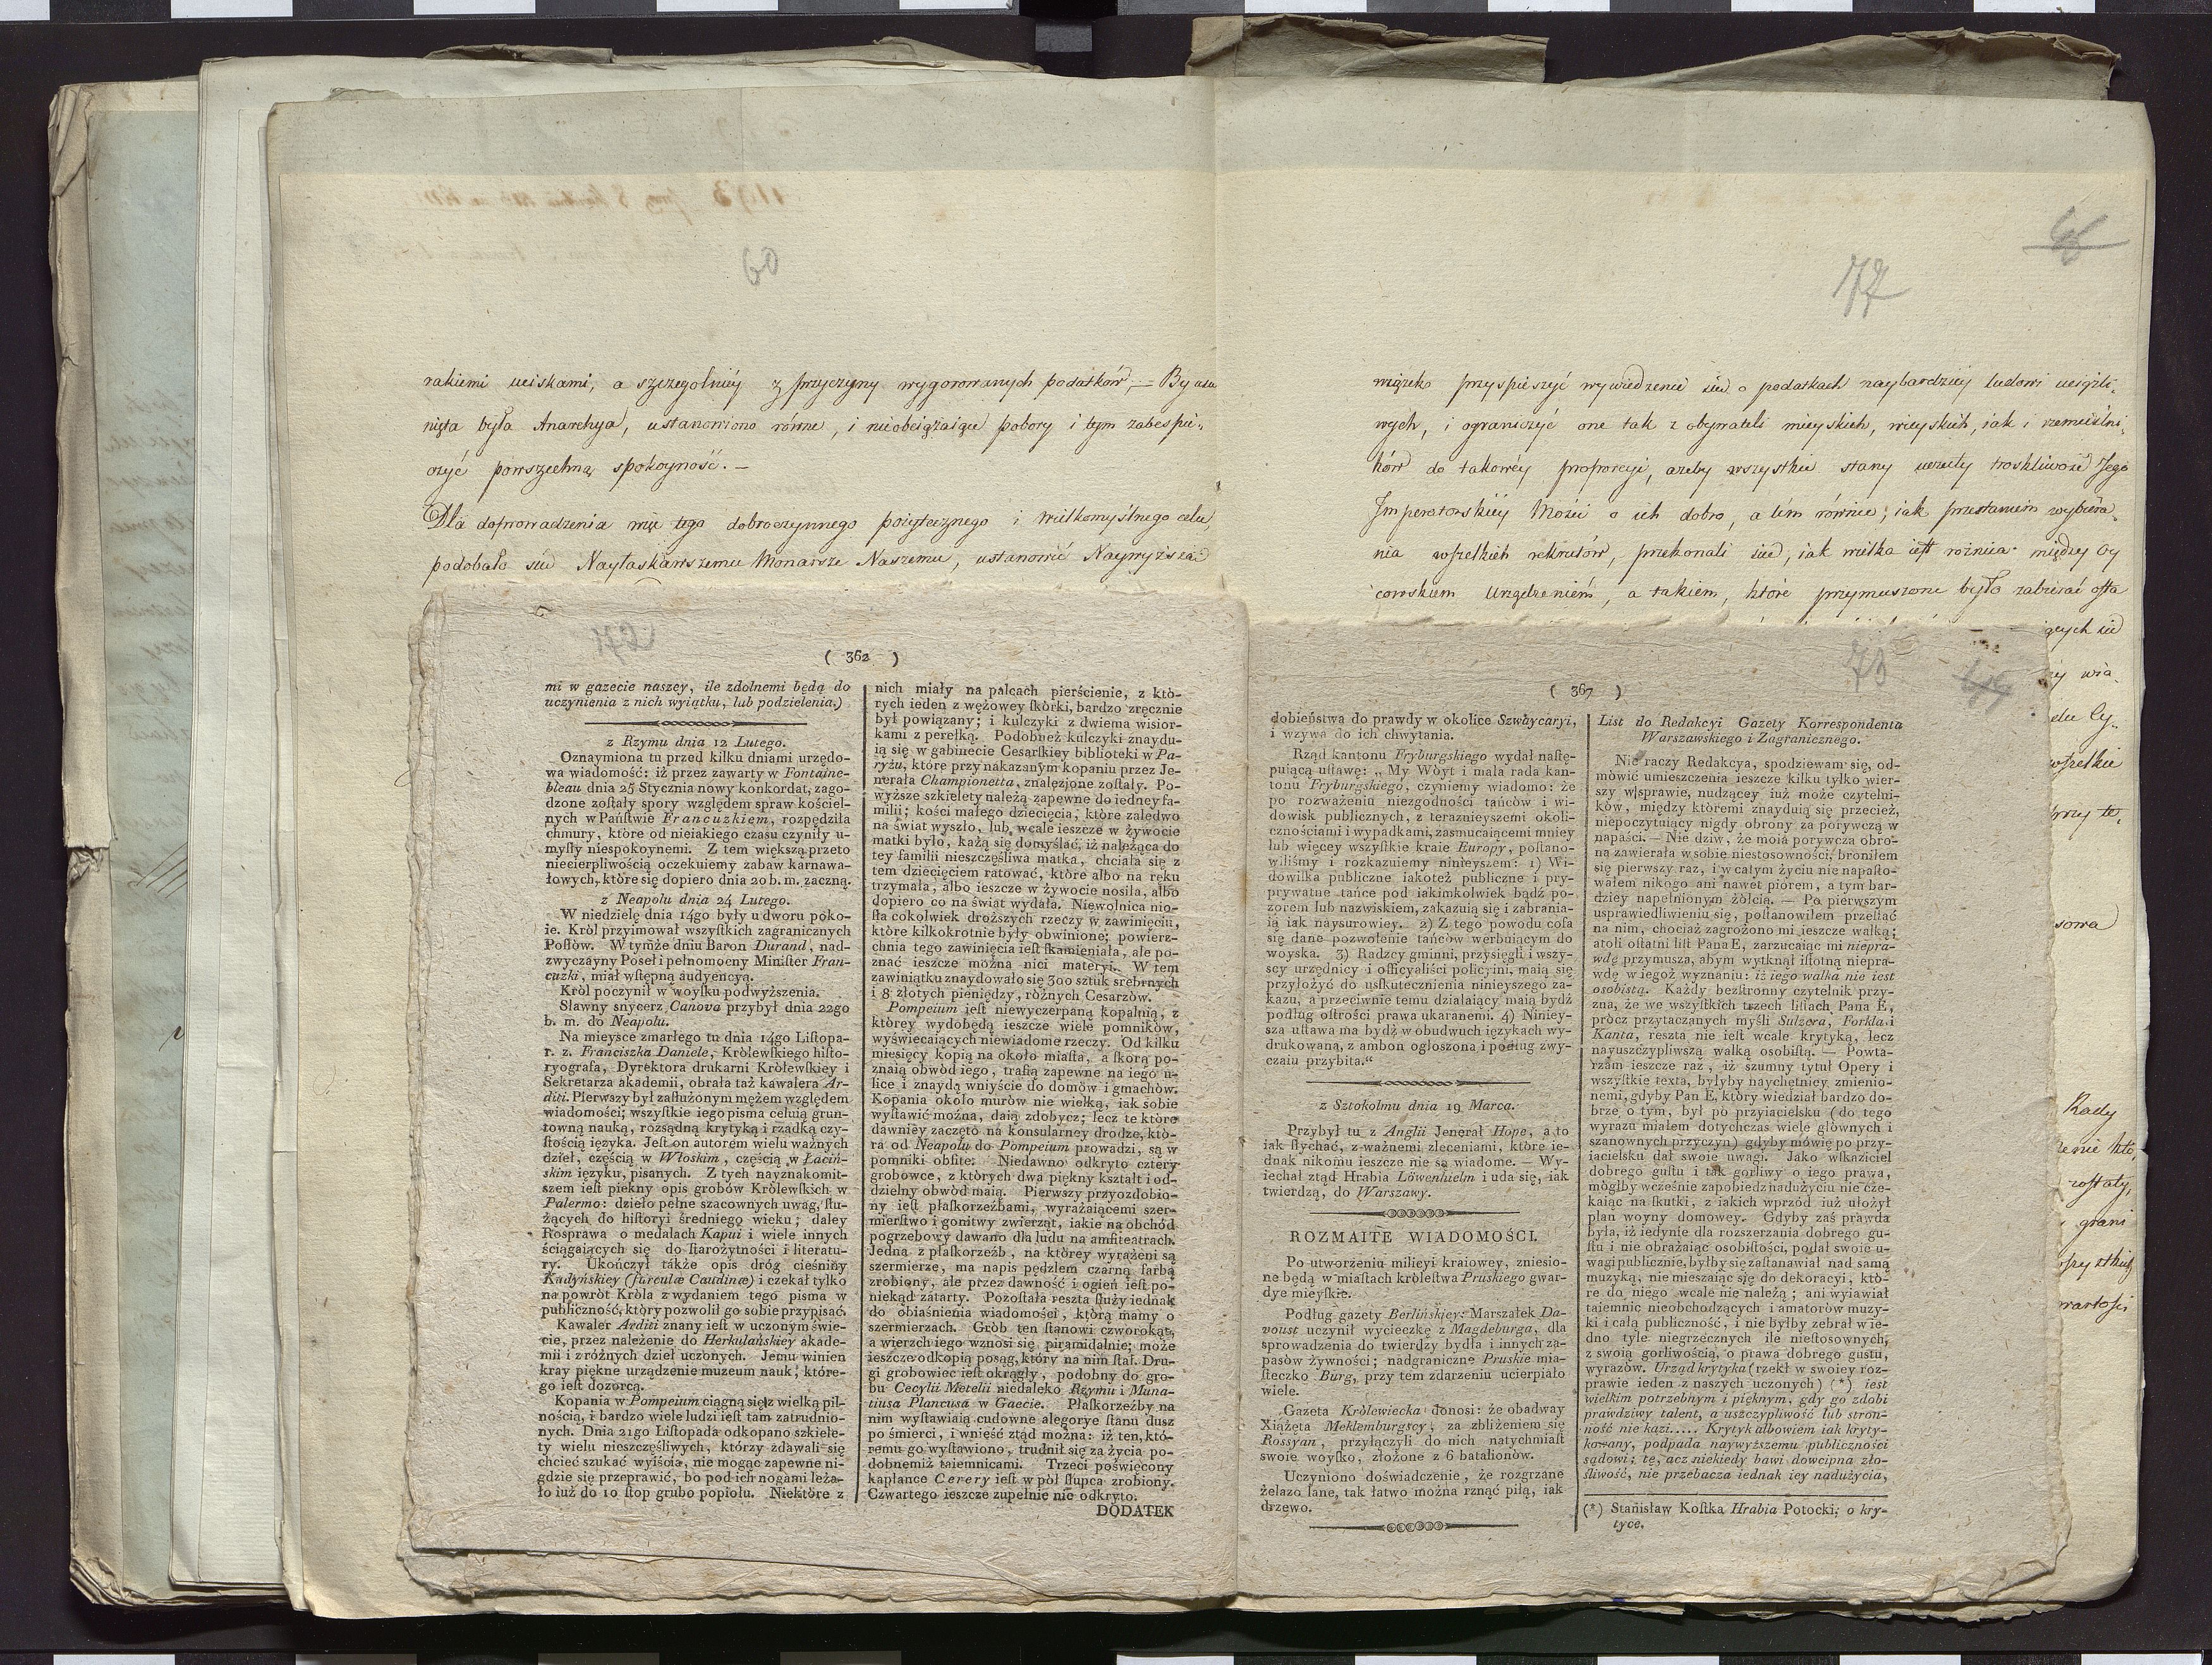 60
rakiemi uciskami, a szczegolniéy z przyczyny wygorowanych podatków, — By usu
nięta była Anarchya, ustanowiono równe, i nieobciążaiące pobory i tym zabespie-
czyć powszechną spokoyność. —
Dla doprowadzenia więc tego dobroczynnego pożytecznego i Wielkomyślnego celu,
podobało się Nayłaskawszemu Monarsze Naszemu, ustanowić Naywyższą
77
wiązek przyspieszyć wywiedzenie się o podatkach naybardziey ludowi uciążli-
wych, i ograniczyć one tak z obywateli mieyskich, wieyskich, iak i rzemieślni-
ków do takowéy proporcyi, ażeby wszystkie stany uczuły troskliwość Jego
Imperatorskiéy Mości o ich dobro, a tém równie, iak przestaniem wybiera-
nia wszelkich rekrutów, przekonali się, iak wielka iest rożnica między Oy
cowskiem Urządzeniém, a takiem, które przymuszone było zabierać osta
ących się
wszelkie
przy te-
Rady
zostały,
grani
wartości
( 362 )
mi w gazecie naszey, ile zdolnemi będą do
uczynienia z nich wyiątku, lub podzielenia.)
z Rzymu dnia 12 Lutego.
Oznaymiona tu przed kilku dniami urzędo-
wa wiadomość: iż przez zawarty w Fontaine-
bleau dnia 25 Stycznia nowy konkordat, zago-
dzone zoſtały spory względem spraw kościel-
nych w Pańſtwie Francuzkiem, rozpędziła
chmury, które od nieiakiego czasu czyniły u-
myſły niespokoynemi. Z tem większą przeto
niecierpliwością oczekuiemy zabaw karnawa-
łowych, które się dopiero dnia 20 b. m. zaczną.
z Neapolu dnia 24 Lutego.
W niedzielę dnia 14go były u dworu poko-
ie. Król przyimował wszyſtkich zagranicznych
Poſłów. W tymże dniu Baron Durand, nad-
zwyczayny Poseł i pełnomocny Miniſter Fran-
cuzki, miał wſtępną audyencyą.
Król poczynił w woyſku podwyższenia.
Sławny snycerz Canova przybył dnia 22go
b. m. do Neapolu.
Na mieysce zmarłego tu dnia 14go Liſtopa-
r. z. Franciszka Daniele, Królewſkiego hiſto-
ryografa, Dyrektora drukarni Królewſkiey i
Sekretarza akademii, obrała taż kawalera Ar-
diti. Pierwszy był zaſłużonym mężem względem
wiadomości; wszyſtkie iego pisma celuią grun-
towną nauką, rozsądną krytyką i rzadką czy-
ſtością ięzyka. Jeſt on autorem wielu ważnych
dzieł, częścią w Włoskim, częścią w Łaciń-
skim ięzyku, pisanych. Z tych nayznakomit-
szem ieſt piękny opis grobów Królewſkich w
Palermo: dzieło pełne szacownych uwag, ſłu-
żących do hiſtoryi średniego wieku; daley
Rosprawa o medalach Kapui i wiele innych
ściągaiących się do ſtarożytności i literatu-
ry. Ukończył także opis dróg cieśniny
Kadyńskiey (furculæ Caudinæ) i czekał tylko
na powrót Króla z wydaniem tego pisma w
publiczność, który pozwolił go sobie przypisać.
Kawaler Arditi znany ieſt w uczonym świe-
cie, przez należenie do Herkulańskiey akade-
mii i z różnych dzieł uczonych. Jemu winien
kray piękne urządzenie muzeum nauk, które-
go ieſt dozorcą.
Kopania w Pompeium ciągną się z wielką pil-
nością, i bardzo wiele ludzi ieſt tam zatrudnio-
nych. Dnia 21go Liſtopada odkopano szkiele-
ty wielu nieszczęśliwych, którzy zdawali się
chcieć szukać wyiścia, nie mogąc zapewne ni-
gdzie się przeprawić, bo pod ich nogami leża-
ło iuż do 10 ſtop grubo popiołu. Niektóre z
nich miały na palcach pierścienie, z któ-
rych ieden z wężowey ſkórki, bardzo zręcznie
był powiązany; i kulczyki z dwiema wisior-
kami z perełką. Podobneż kulczyki znaydu-
ią się w gabinecie Cesarſkiey biblioteki w Pa-
ryżu, które przy nakazanym kopaniu przez Je-
nerała Championetta, znalezione zoſtały. Po-
wyższe szkielety należą zapewne do iedney fa-
milii; kości małego dziecięcia, które zaledwo
na świat wyszło, lub wcale ieszcze w żywocie
matki było, każą się domyślać, iż należąca do
tey familii nieszczęśliwa matka, chciała się z
tem dziecięciem ratować, które albo na ręku
trzymała, albo ieszcze w żywocie nosiła, albo
dopiero co na świat wydała. Niewolnica nio-
ſła cokolwiek droższych rzeczy w zawinięciu,
które kilkokrotnie były obwinione; powierz-
chnia tego zawinięcia ieſt ſkamieniała, ale po-
znać ieszcze można nici materyi. W tem
zawiniątku znaydowało się 300 sztuk srebrnych
i 8 złotych pieniędzy, różnych Cesarzów.
Pompeium ieſt niewyczerpaną kopalnią, z
którey wydobędą ieszcze wiele pomników,
wyświecaiących niewiadome rzeczy. Od kilku
miesięcy kopią na około miaſta, a ſkoro po-
znaią obwód iego, trafią zapewne na iego u-
lice i znaydą wniyście do domów i gmachów.
Kopania około murów nie wielką, iak sobie
wyſtawić można, daią zdobycz; lecz te które
dawniey zaczęto na konsularney drodze, któ-
ra od Neapolu do Pompeium prowadzi, są w
pomniki obfite. Niedawno odkryto cztery
grobowce, z których dwa piękny kształt i od-
dzielny obwód maią. Pierwszy przyozdobio-
ny ieſt płaſkorzeźbami, wyrażaiącemi szer-
mierſtwo i gonitwy zwierząt, iakie na obchód
pogrzebowy dawano dla ludu na amfiteatrach.
Jedna z płaſkorzeźb, na którey wyrażeni są
szermierze, ma napis pędzlem czarną farbą
zrobiony, ale przez dawność i ogień ieſt po-
niekąd zatarty. Pozoſtała reszta ſłuży iednak
do obiaśnienia wiadomości, którą mamy o
szermierzach. Grób ten ſtanowi czworokąt,
a wierzch iego wznosi się piramidalnie; może
ieszcze odkopią posąg, który na nim ſtał. Dru-
gi grobowiec ieſt okrągły, podobny do gro-
bu Cecylii Metelii niedaleko Rzymu i Muna-
tiusa Plancusa w Gaecie. Płaſkorzeźby na
nim wyſtawiaią cudowne alegorye ſtanu dusz
po śmierci, i wnieść ztąd można: iż ten, któ-
remu go wyſtawiono, trudnił się za życia po-
dobnemiż taiemnicami. Trzeci poświęcony
kapłance Cerery ieſt w pół ſłupca zrobiony.
Czwartego ieszcze zupełnie nie odkryto.
DODATEK
( 367 )
dobieńſtwa do prawdy w okolice Szwaycaryi,
i wzywa do ich chwytania.
Rząd kantonu Fryburgskiego wydał naſtę-
puiącą uſtawę: „ My Wóyt i mała rada kan-
tonu Fryburgskiego, czyniemy wiadomo: że
po rozważeniu niezgodności tańców i wi-
dowisk publicznych, z teraznieyszemi okoli-
cznościami i wypadkami, zasmucaiącemi mniey
lub więcey wszyſtkie kraie Europy, poſtano-
wiliśmy i rozkazuiemy ninieyszem: 1) Wi-
dowiſka publiczne iakoteż publiczne i pry-
prywatne tańce pod iakimkolwiek bądź po-
zorem lub nazwiskiem, zakazuią się i zabrania-
ią iak naysurowiey. 2) Z tego powodu cofa
się dane pozwolenie tańców werbuiącym do
woyska. 3) Radzcy gminni, przysięgli i wszy-
scy urzędnicy i officyaliści policyini, maią się
przyłożyć do uskutecznienia ninieyszego za-
kazu, a przeciwnie temu działaiący maią bydź
podług oſtrości prawa ukaranemi. 4) Niniey-
sza uſtawa ma bydź w obudwuch ięzykach wy-
drukowana, z ambon ogłoszona i podług zwy-
czaiu przybita.“
z Sztokolmu dnia 19 Marca.
Przybył tu z Anglii Jenerał Hope, a to
iak ſłychać, z ważnemi zleceniami, które ie-
dnak nikomu ieszcze nie są wiadome. — Wy-
iechał ztąd Hrabia Löwenhielm i uda się, iak
twierdzą, do Warszawy.
ROZMAITE WIADOMOŚCI.
Po utworzeniu milicyi kraiowey, zniesio-
ne będą w miaſtach króleſtwa Pruskiego gwar-
dye mieyſkie.
Podług gazety Berlińskiey: Marszałek Da-
voust uczynił wycieczkę z Magdeburga, dla
sprowadzenia do twierdzy bydła i innych za-
pasów żywności; nadgraniczne Pruskie mia-
ſteczko Burg, przy tem zdarzeniu ucierpiało
wiele.
Gazeta Królewiecka donosi: że obadway
Xiążęta Meklemburgscy, za zbliżeniem się
Rossyan, przyłączyli do nich natychmiaſt
swoie woyſko, złożone z 6 batalionów.
Uczyniono doświadczenie, że rozgrzane
żelazo lane, tak łatwo można rznąć piłą, iak
drzewo.
List do Redakcyi Gazety Korrespondenta
Warszawskiego i Zagranicznego.
Nie raczy Redakcya, spodziewam się, od-
mówić umieszczenia ieszcze kilku tylko wier-
szy w sprawie, nudzącey iuż może czytelni-
ków, między któremi znayduią się przecież,
niepoczytuiący nigdy obrony za porywczą w
napaści. — Nie dziw, że moia porywcza obro-
na zawierała w sobie niestosowności, broniłem
się pierwszy raz, i w całym życiu nie napaſto-
wałem nikogo ani nawet piórem, a tym bar-
dziey napełnionym żółcią. — Po pierwszym
usprawiedliwieniu się, poſtanowiłem przeſtać
na nim, chociaż zagrożono mi ieszcze walką;
atoli oſtatni liſt Pana E, zarzucaiąc mi niepra-
wdę przymusza, abym wytknął iſtotną niepra-
wdę w iegoż wyznaniu: iż iego walka nie iest
osobistą. Każdy bezſtronny czytelnik przy-
zna, że we wszyſtkich trzech liſtach Pana E,
prócz przytaczanych myśli Sulzera, Forkla i
Kanta, reszta nie ieſt wcale krytyką, lecz
nayuszczypliwszą walką osobiſtą. — Powta-
rzam ieszcze raz, iż szumny tytuł Opery i
wszyſtkie texta, byłyby naychętniey zmienio-
nemi, gdyby Pan E, który wiedział bardzo do-
brze o tym, był po przyiacielsku (do tego
wyrazu miałem dotychczas wiele głównych i
szanownych przyczyn) gdyby mówię po przy-
iacielsku dał swoie uwagi. Jako wſkaziciel
dobrego guſtu i tak gorliwy o iego prawa,
mógłby wcześnie zapobiedz nadużyciu nie cze-
kaiąc na ſkutki, z iakich wprzód iuż ułożył
plan woyny domowey. Gdyby zaś prawda
była, iż iedynie dla rozszerzania dobrego gu-
ſtu i nie obrażaiąc osobiſtości, podał swoie u-
wagi publicznie, byłby się zaſtanawiał nad samą
muzyką, nie mieszaiąc się do dekoracyi, któ-
re do niego wcale nie należą; ani wyiawiał
taiemnic nieobchodzących i amatorów muzy-
ki i całą publiczność, i nie byłby zebrał w ie-
dno tyle niegrzecznych ile nieſtosownych,
z swoią gorliwością, o prawa dobrego gustu,
wyrazów. Urząd krytyka (rzekł w swoiey roz-
prawie ieden z naszych uczonych) (*) iest
wielkim potrzebnym i pięknym, gdy go zdobi
prawdziwy talent, a uszczypliwość lub stron-
ność nie kazi..... Krytyk albowiem iak kryty-
kowany, podpada naywyższemu publiczności
sądowi; tę, acz niekiedy bawi dowcipna zło-
śliwość, nie przebacza iednak iey nadużycia,
(*) Stanisław Koſtka Hrabia Potocki, o kry-
tyce.